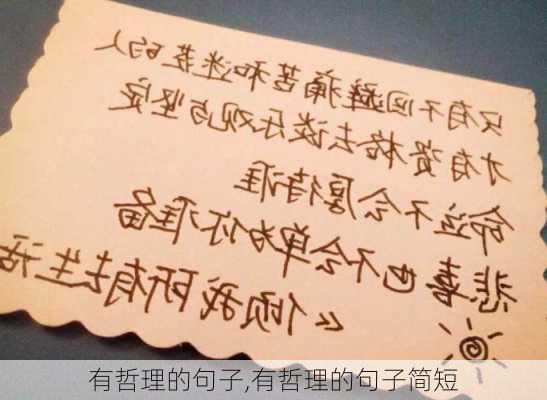 只有不回避痛苦和迷茫的人
才有資格去谈乐观与坚定
命运不会厚待谁
悲喜也不会单为你准备
《倾我所有去生活
有哲理的句子,有哲理的句子简短